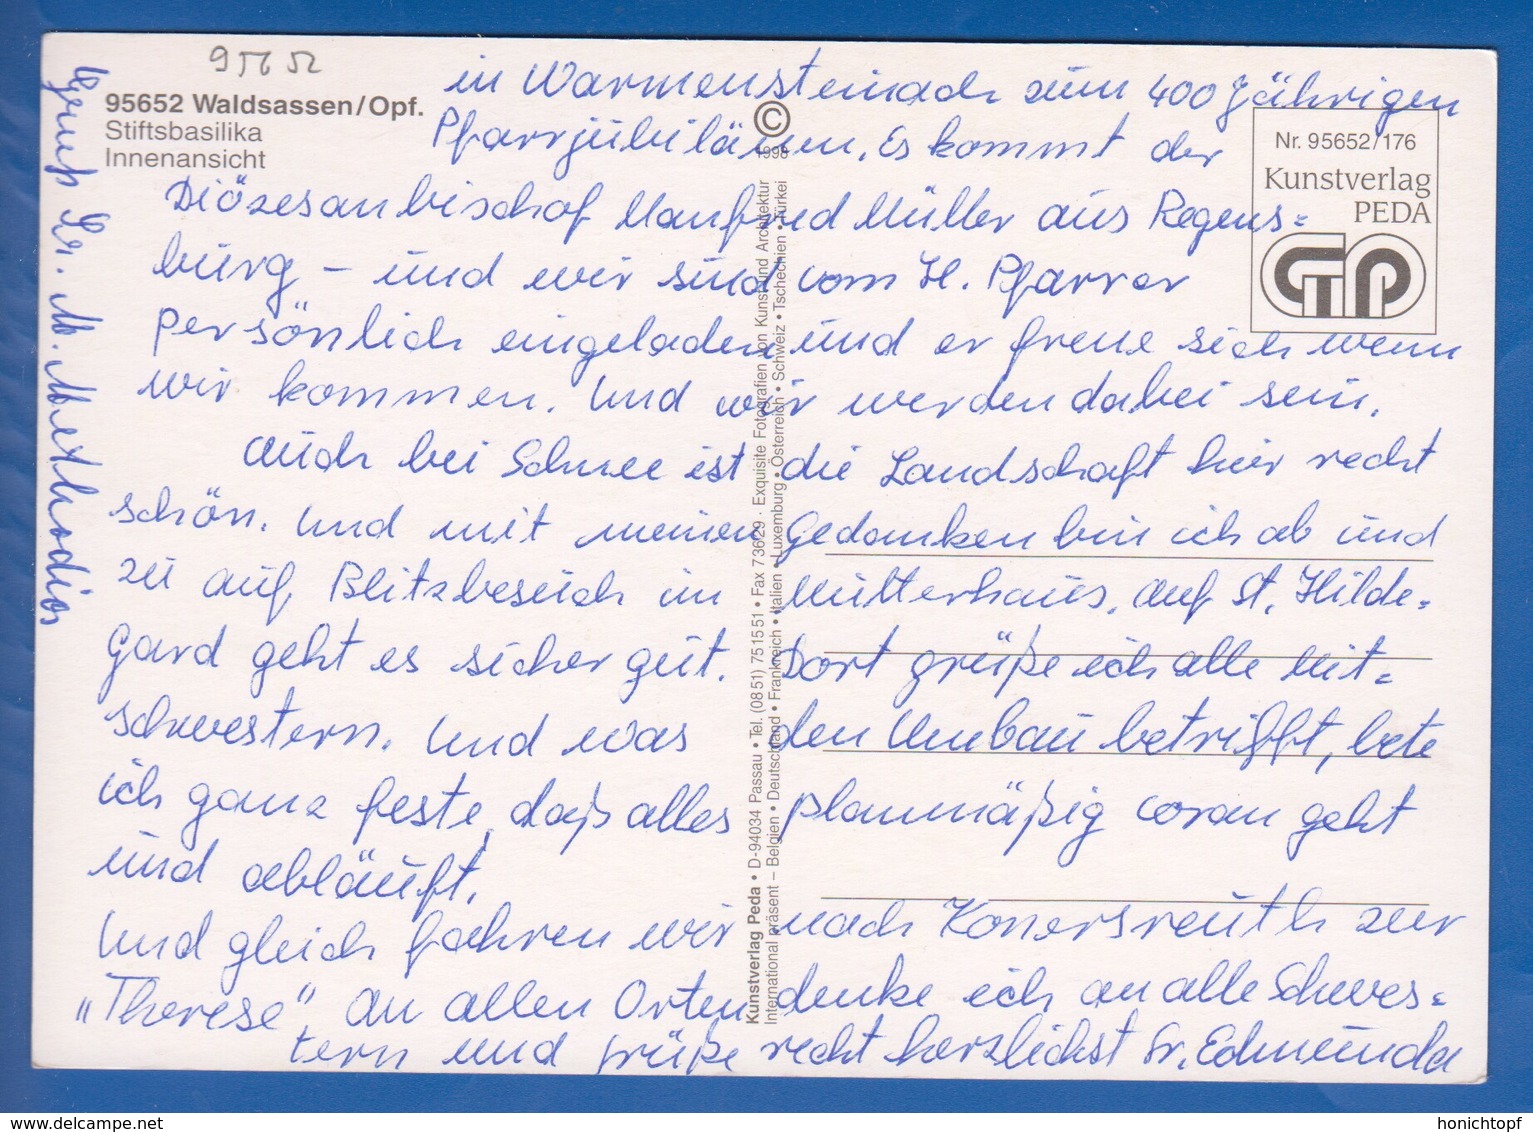 95652
95652 Waldsassen/Opf.
Stiftsbasilika
Innenansicht
© 1998
Nr. 95652/176
Kunstverlag
PEDA
in Warmensteinach zum 400 jährigen
Pfarrjubiläum. Es kommt der
Diözesanbischof Manfred Müller aus Regens=
burg – und wir sind vom H. Pfarrer
persönlich eingeladen und er freue sich wenn
wir kommen. Und wir werden dabei sein.
Auch bei Schnee ist die Landschaft hier recht
schön. Und mit meinen Gedanken bin ich ab und
zu auf Blitzbesuch im Mutterhaus. Auf St. Hilde=
gard geht es sicher gut. Dort grüße ich alle Mit=
schwestern. Und was den Umbau betrifft, bete
ich ganz feste, daß alles planmäßig voran geht
und abläuft.
Und gleich fahren wir nach Konersreuth zur
„Therese“ An allen Orten denke ich an alle Schwes=
tern und grüße recht herzlichst Sr. Edmunda
Gruß Sr. M. Methodios
Kunstverlag Peda • D-94034 Passau • Tel. (08 51) 75 15 51 • Fax 7 36 29 · Exquisite Fotografien von Kunst und Architektur
International präsent – Belgien • Deutschland • Frankreich • Italien • Luxemburg • Österreich • Schweiz • Tschechien • Türkei
www.delcampe.net
honichtopf